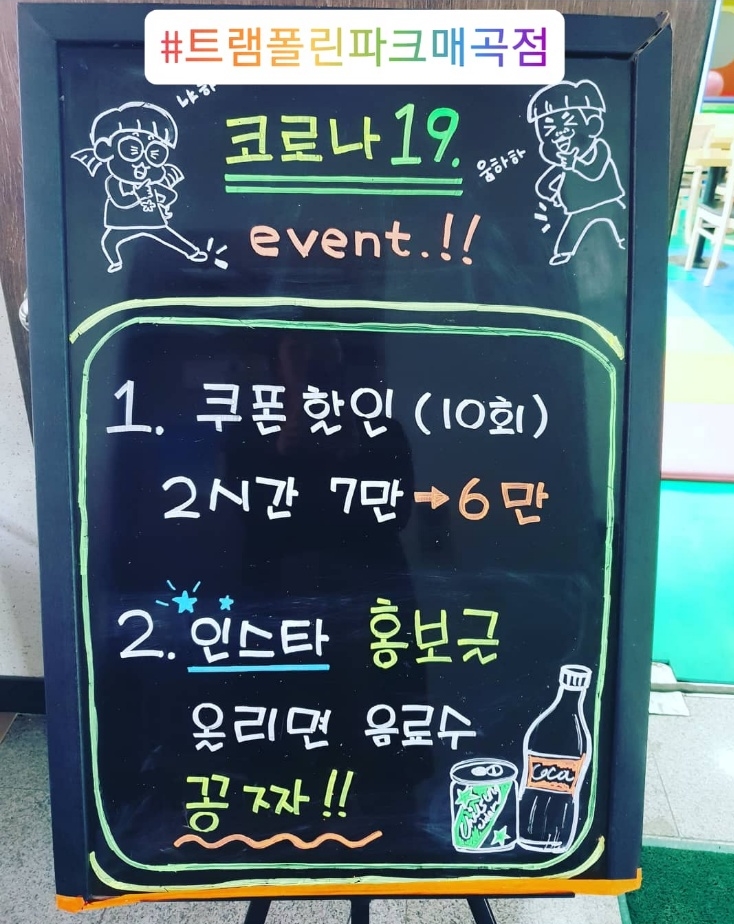 #트램폴린파크매곡점
냐하
코로나 19.
움하하
event.!!
1. 쿠폰 핫인 (10회)
2시간 7만 → 6만
2. 인스타 홍보글
올리면 음료수
꽁짜!!
Coca